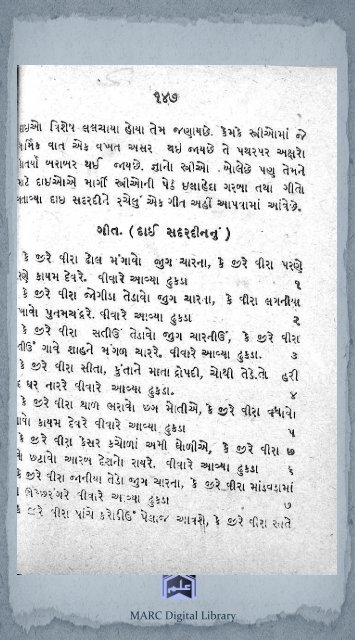 ૧૪૭
દાઇઓ ત્રિશેષ લલચાયા હોયા તેમ જણાયછે. કેમકે સ્ત્રીઓમાં જે
ધાર્મિક વાત એક વખત અસર થઈ જાયછે તે પથરપર અક્ષરો
કોતર્યા બરાબર થઈ જાયછે. જ્ઞાનો સ્ત્રીઓ બોલેછે પણ તેમને
માટે દાઇઓએ માર્ગી સ્ત્રીઓની પેઠે ઇલાહેદા ગરબા તથા ગીતો
બનાવ્યા દાઇ સદરદીને રચેલું એક ગીત અહીં આપવામાં આવેછે.
ગીત. (દાઈ સદરદીનનું)
કે જીરે વીરા ઢોલ મંગાવો જુગ ચારના, કે જીરે વીરા પરણે
પરણે કાયમ દેવરે. વીવારે આવ્યા ઢુકડા ૧
કે જીરે વીરા જોગીડા તેડાવો જુગ ચારના, કે જીરે વીરા લગનીયા
લખાવો પુતમચંદ્રરે. વીવારે આવ્યા ઢુકડા ૨
કે જીરે વીરા સતીઉં તેડાવો જુગ ચારનીઉં, કે જીરે વીરા
સતીઉં ગાવે શાહને મંગળ ચારરે. વીવારે આવ્યા ઢુકડા. ૩
કે જીરે વીરા સીતા, કુંતાને માતા દ્રોપદી, ચોથી તેડે.તે હરી
ઘર નારરે વીવારે આવ્યા ઢુકડા. ૪
કે જીરે વીરા થાળ ભરાવો છગ મોતીએ, કે જીરે વીરા વધાવો
વધાવો કાયમ દેવરે વીવારે આવ્યા ઢુકડા ૫
કે જીરે વીરા કેસર કચોળાં અમી ઘોળીએ, કે જીરે વીરા
છટાવો આરબ દેશનો રાયરે. વીવારે આવ્યા ઢુકડા ૬
કે જીરે વીરા જાનીયા તેડો જુગ ચારના, કે જીરે વીરા માંડવડામાં
વીવારે આવ્યા ઢુકડા ૭
કે જીરે વીરા પાંચ કરોડીઉં પેલાજ આવશે, કે જીરે વીરા સાતે
MARC Digital Library